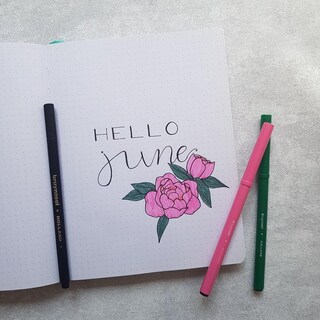 HELLO
june